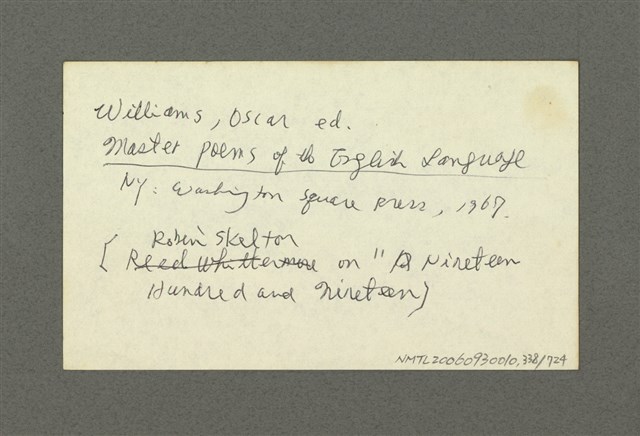 Williams, Oscar ed.
Master poems of the English Language
NY: Washington Square Press, 1967.
Robin Skelton
[ Reed Whittemore on "A Nineteen
Hundred and Nineteen]
NMTL20060930010,338/724